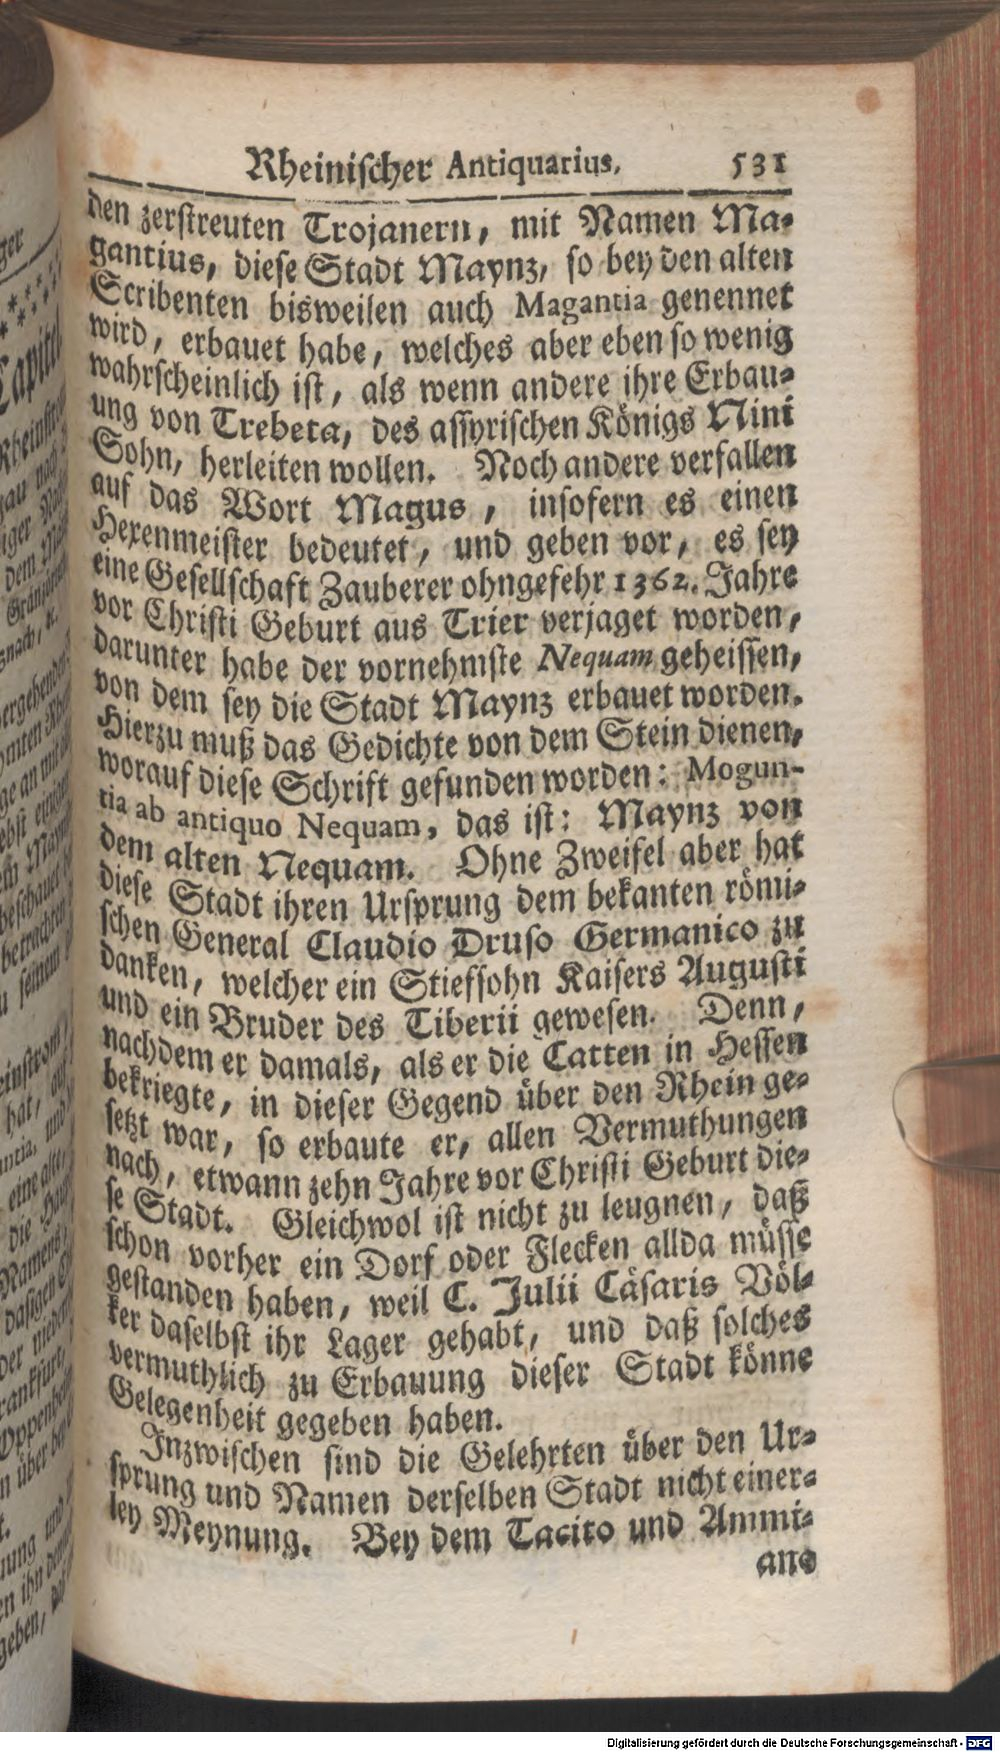 Rheinischer Antiquarius. 531
den zerstreuten Trojanern, mit Namen Ma-
gantius, diese Stadt Maynz, so bey den alten
Scribenten bisweilen auch Magantia genennet
wird, erbauet habe, welches aber eben so wenig
wahrscheinlich ist, als wenn andere ihre Erbau-
ung von Trebeta, des assyrischen Königs Nini
Sohn, herleiten wollen. Noch andere verfallen
auf das Wort Magus, insofern es einen
Hexenmeister bedeutet, und geben vor, es sey
eine Gesellschaft Zauberer ohngefehr 1362. Jahre
vor Christi Geburt aus Trier verjaget worden,
darunter habe der vornehmste Nequam geheissen,
von dem sey die Stadt Maynz erbauet worden.
Hierzu muß das Gedichte von dem Stein dienen,
worauf diese Schrift gefunden worden: Mogun-
tia ab antiquo Nequam, das ist: Maynz von
dem alten Nequam. Ohne Zweifel aber hat
diese Stadt ihren Ursprung dem bekanten römi-
schen General Claudio Druso Germanico zu
danken, welcher ein Stiefsohn Kaisers Augusti
und ein Bruder des Tiberii gewesen. Denn,
nachdem er damals, als er die Catten in Hessen
bekriegte, in dieser Gegend über den Rhein ge-
setzt war, so erbaute er, allen Vermuthungen
nach, etwann zehn Jahre vor Christi Geburt die-
se Stadt. Gleichwol ist nicht zu leugnen, daß
schon vorher ein Dorf oder Flecken allda müsse
gestanden haben, weil C. Julii Cäsaris Völ-
ker daselbst ihr Lager gehabt, und daß solches
vermuthlich zu Erbauung dieser Stadt könne
Gelegenheit gegeben haben.
Inzwischen sind die Gelehrten über den Ur-
sprung und Namen derselben Stadt nicht einer-
ley Meynung. Bey dem Tacito und Ammi-
ano
Digitalisierung gefördert durch die Deutsche Forschungsgemeinschaft - DFG